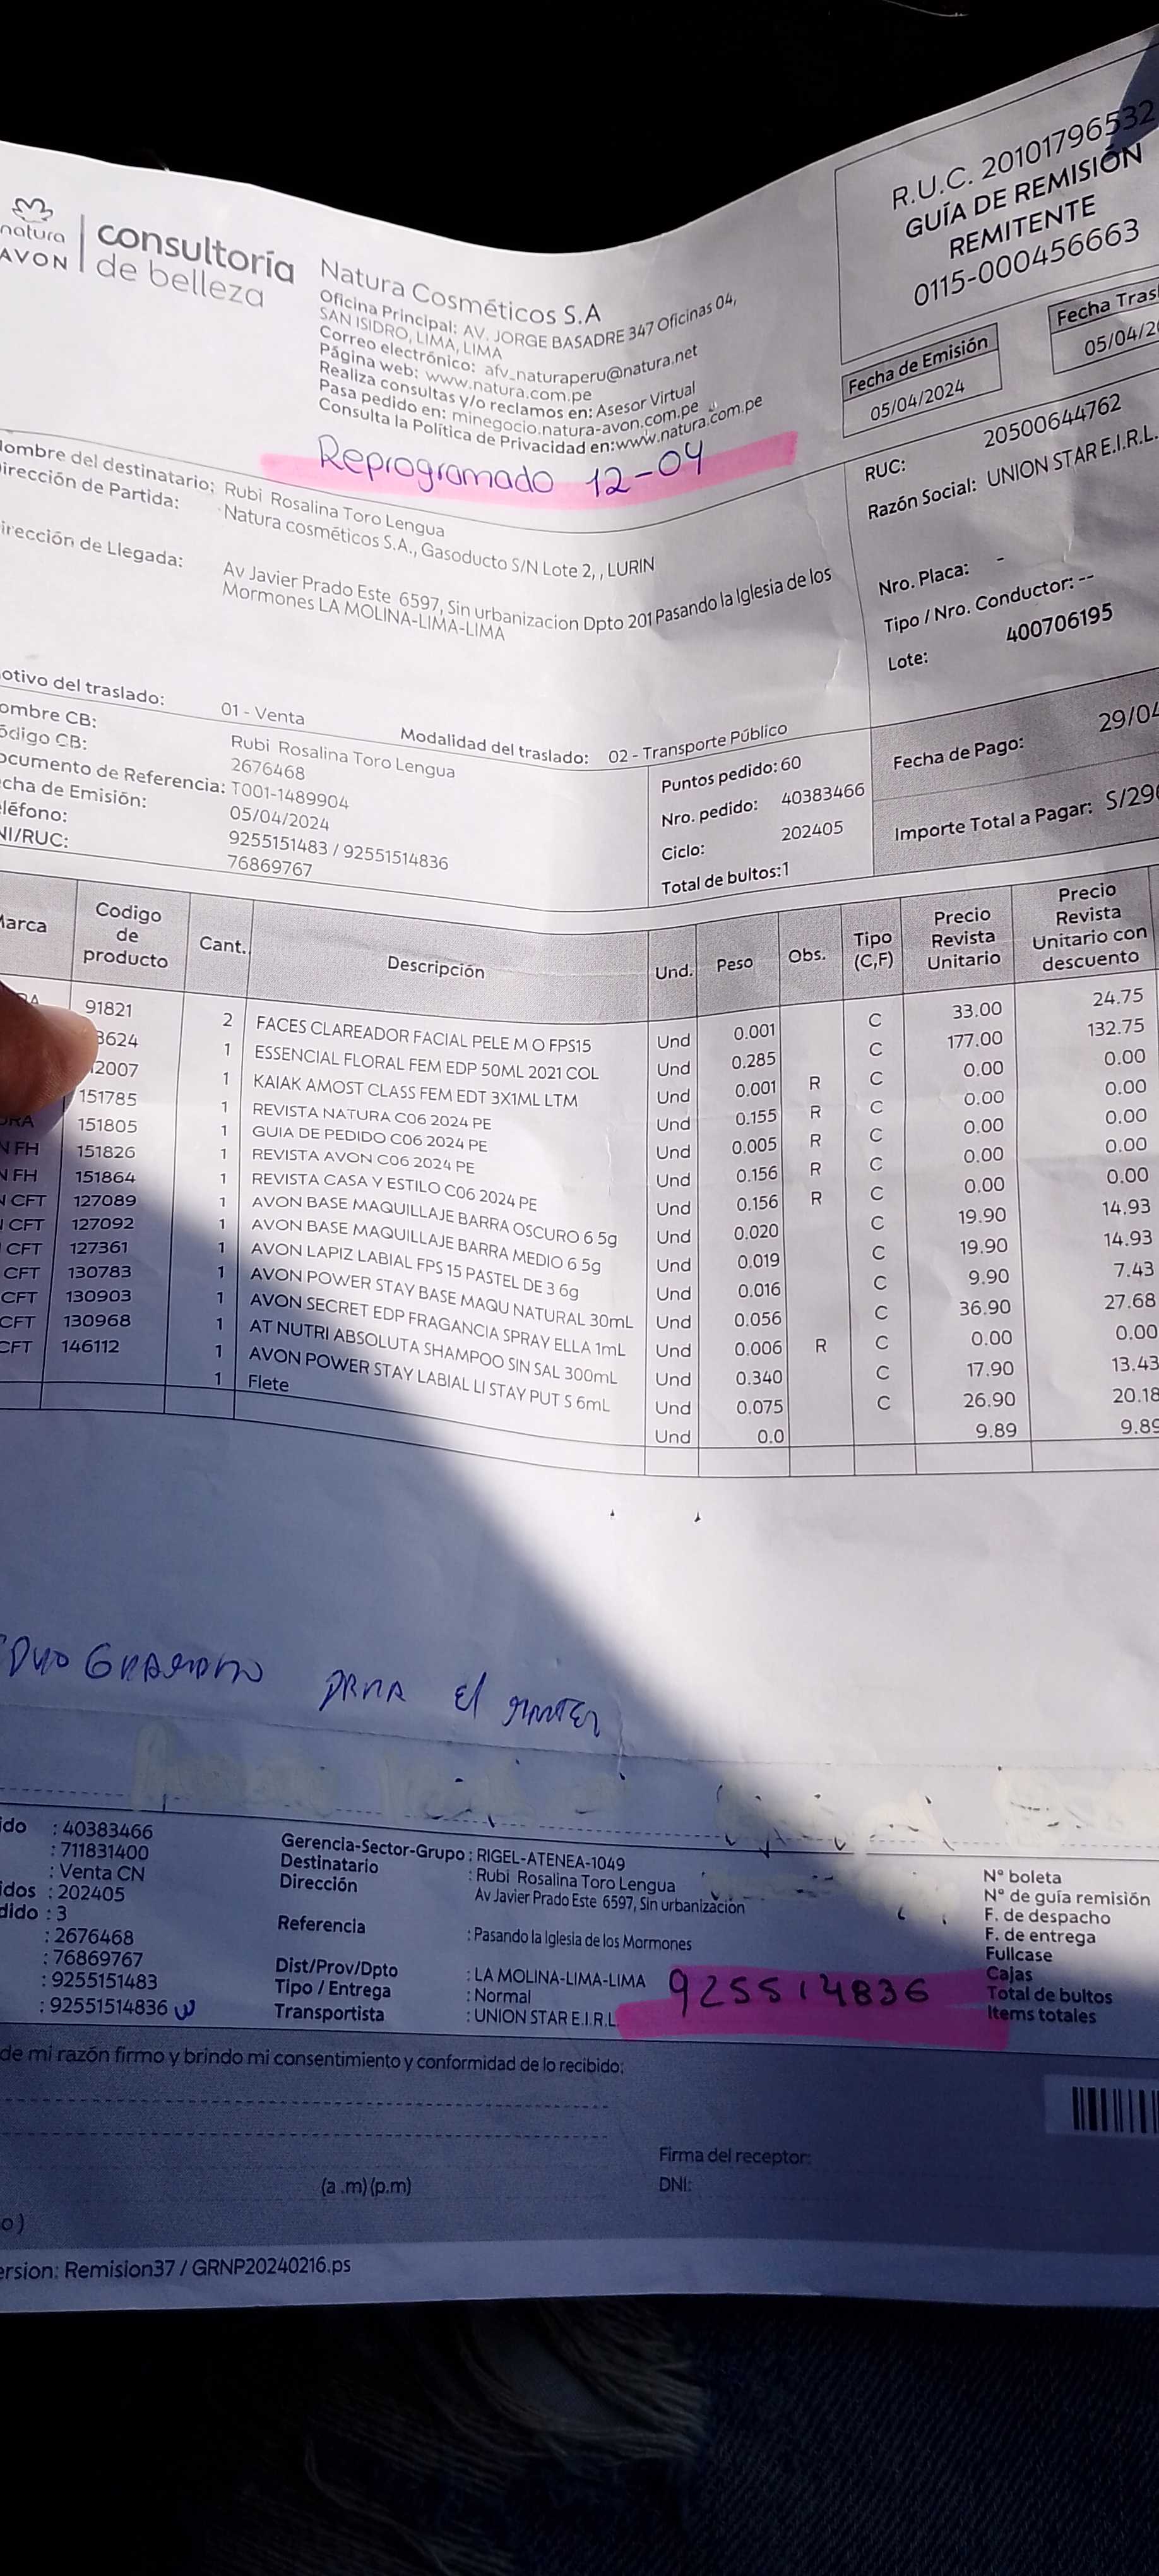 natura
AVON
consultoría
de belleza
Natura Cosméticos S.A
Oficina Principal: AV. JORGE BASADRE 347 Oficinas 04,
SAN ISIDRO, LIMA, LIMA
Correo electrónico: afv_naturaperu@natura.net
Página web: www.natura.com.pe
Realiza consultas y/o reclamos en: Asesor Virtual
Pasa pedido en: minegocio.natura-avon.com.pe
Consulta la Política de Privacidad en:www.natura.com.pe
R.U.C. 20101796532
GUÍA DE REMISIÓN
REMITENTE
0115-000456663
Fecha de Emisión
05/04/2024
Fecha Tras
05/04/2
Reprogramado 12-04
ombre del destinatario: Rubi Rosalina Toro Lengua
irección de Partida: Natura cosméticos S.A., Gasoducto S/N Lote 2, , LURIN
irección de Llegada: Av Javier Prado Este 6597, Sin urbanizacion Dpto 201 Pasando la Iglesia de los
Mormones LA MOLINA-LIMA-LIMA
RUC: 20500644762
Razón Social: UNION STAR E.I.R.L.
Nro. Placa: -
Tipo / Nro. Conductor: --
Lote: 400706195
otivo del traslado: 01 - Venta Modalidad del traslado: 02 - Transporte Público
ombre CB: Rubi Rosalina Toro Lengua
ódigo CB: 2676468
ocumento de Referencia: T001-1489904
cha de Emisión: 05/04/2024
léfono: 9255151483 / 92551514836
NI/RUC: 76869767
Puntos pedido: 60
Nro. pedido: 40383466
Ciclo: 202405
Total de bultos:1
Fecha de Pago: 29/04
Importe Total a Pagar: S/29
Marca Codigo de producto Cant. Descripción Und. Peso Obs. Tipo (C,F) Precio Revista Unitario Precio Revista Unitario con descuento
91821 2 FACES CLAREADOR FACIAL PELE M O FPS15 Und 0.001 C 33.00 24.75
3624 1 ESSENCIAL FLORAL FEM EDP 50ML 2021 COL Und 0.285 C 177.00 132.75
2007 1 KAIAK AMOST CLASS FEM EDT 3X1ML LTM Und 0.001 R C 0.00 0.00
151785 1 REVISTA NATURA C06 2024 PE Und 0.155 R C 0.00 0.00
RA 151805 1 GUIA DE PEDIDO C06 2024 PE Und 0.005 R C 0.00 0.00
N FH 151826 1 REVISTA AVON C06 2024 PE Und 0.156 R C 0.00 0.00
N FH 151864 1 REVISTA CASA Y ESTILO C06 2024 PE Und 0.156 R C 0.00 0.00
CFT 127089 1 AVON BASE MAQUILLAJE BARRA OSCURO 6 5g Und 0.020 C 19.90 14.93
CFT 127092 1 AVON BASE MAQUILLAJE BARRA MEDIO 6 5g Und 0.019 C 19.90 14.93
CFT 127361 1 AVON LAPIZ LABIAL FPS 15 PASTEL DE 3 6g Und 0.016 C 9.90 7.43
CFT 130783 1 AVON POWER STAY BASE MAQU NATURAL 30mL Und 0.056 C 36.90 27.68
CFT 130903 1 AVON SECRET EDP FRAGANCIA SPRAY ELLA 1mL Und 0.006 R C 0.00 0.00
CFT 130968 1 AT NUTRI ABSOLUTA SHAMPOO SIN SAL 300mL Und 0.340 C 17.90 13.43
CFT 146112 1 AVON POWER STAY LABIAL LI STAY PUT S 6mL Und 0.075 C 26.90 20.18
1 Flete Und 0.0 9.89 9.89
para El
ido : 40383466
: 711831400
: Venta CN
idos : 202405
dido : 3
: 2676468
: 76869767
: 9255151483
: 92551514836
Gerencia-Sector-Grupo : RIGEL-ATENEA-1049
Destinatario : Rubi Rosalina Toro Lengua
Dirección Av Javier Prado Este 6597, Sin urbanización
Referencia : Pasando la Iglesia de los Mormones
Dist/Prov/Dpto : LA MOLINA-LIMA-LIMA
Tipo / Entrega : Normal
Transportista : UNION STAR E.I.R.L.
925514836
N° boleta
N° de guía remisión
F. de despacho
F. de entrega
Fullcase
Cajas
Total de bultos
Items totales
de mi razón firmo y brindo mi consentimiento y conformidad de lo recibido:
Firma del receptor:
(a .m) (p.m)
DNI:
o )
ersion: Remision37 / GRNP20240216.ps